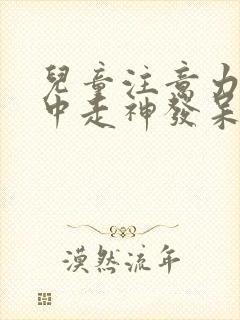 兒童注意力
中走神發呆
漠然流年